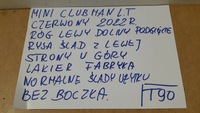 MINI CLUBMAN LT
CZERWONY 2022R
RÓG LEWY DOLNY PODGIĘCIE
RYSA ŚLAD Z LEWEJ
STRONY U GÓRY
LAKIER FABRYKA
NORMALNE ŚLADY UŻYTKU
BEZ BOCZKA. T90